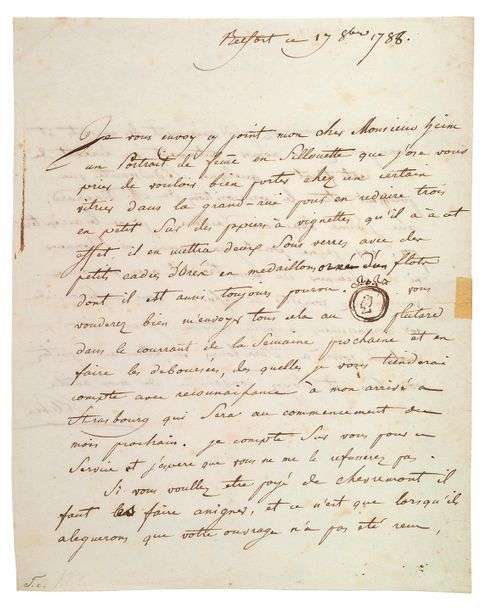 Belfort ce 17 8bre 1788.
Je vous envoy cy joint mon cher Monsieur heim
un Portrait de feme en Sillouette que j'ose vous
prier de vouloir bien porter chez une certain
vitrier dans la grand-rue pour en reduire trois
en petit sur des papiers à vignettes qu'il a a cet
effet, il en mettra deux sous verres avec des
petits cadres Doréx en medaillons orné d'un
dont il est aussi toujours pourvu. vous
vouderez bien m'envoyer tous cela au plutard
dans le courrant de la Semaine prochaine et en
faire les debourses, des quelles je vous tienderai
compte avec reconnaissance à mon arrivé a
Strasbourg qui sera au commencement du
mois prochain. je compte sur vous pour ce
Service et j'espere que vous ne me le refuserez pas.
Si vous voullez etre payé de chevremont il
faut les faire assigner, et ce n'est que lorsqu'ils
alegueront que votre ouvrage n'a pas été reçu,